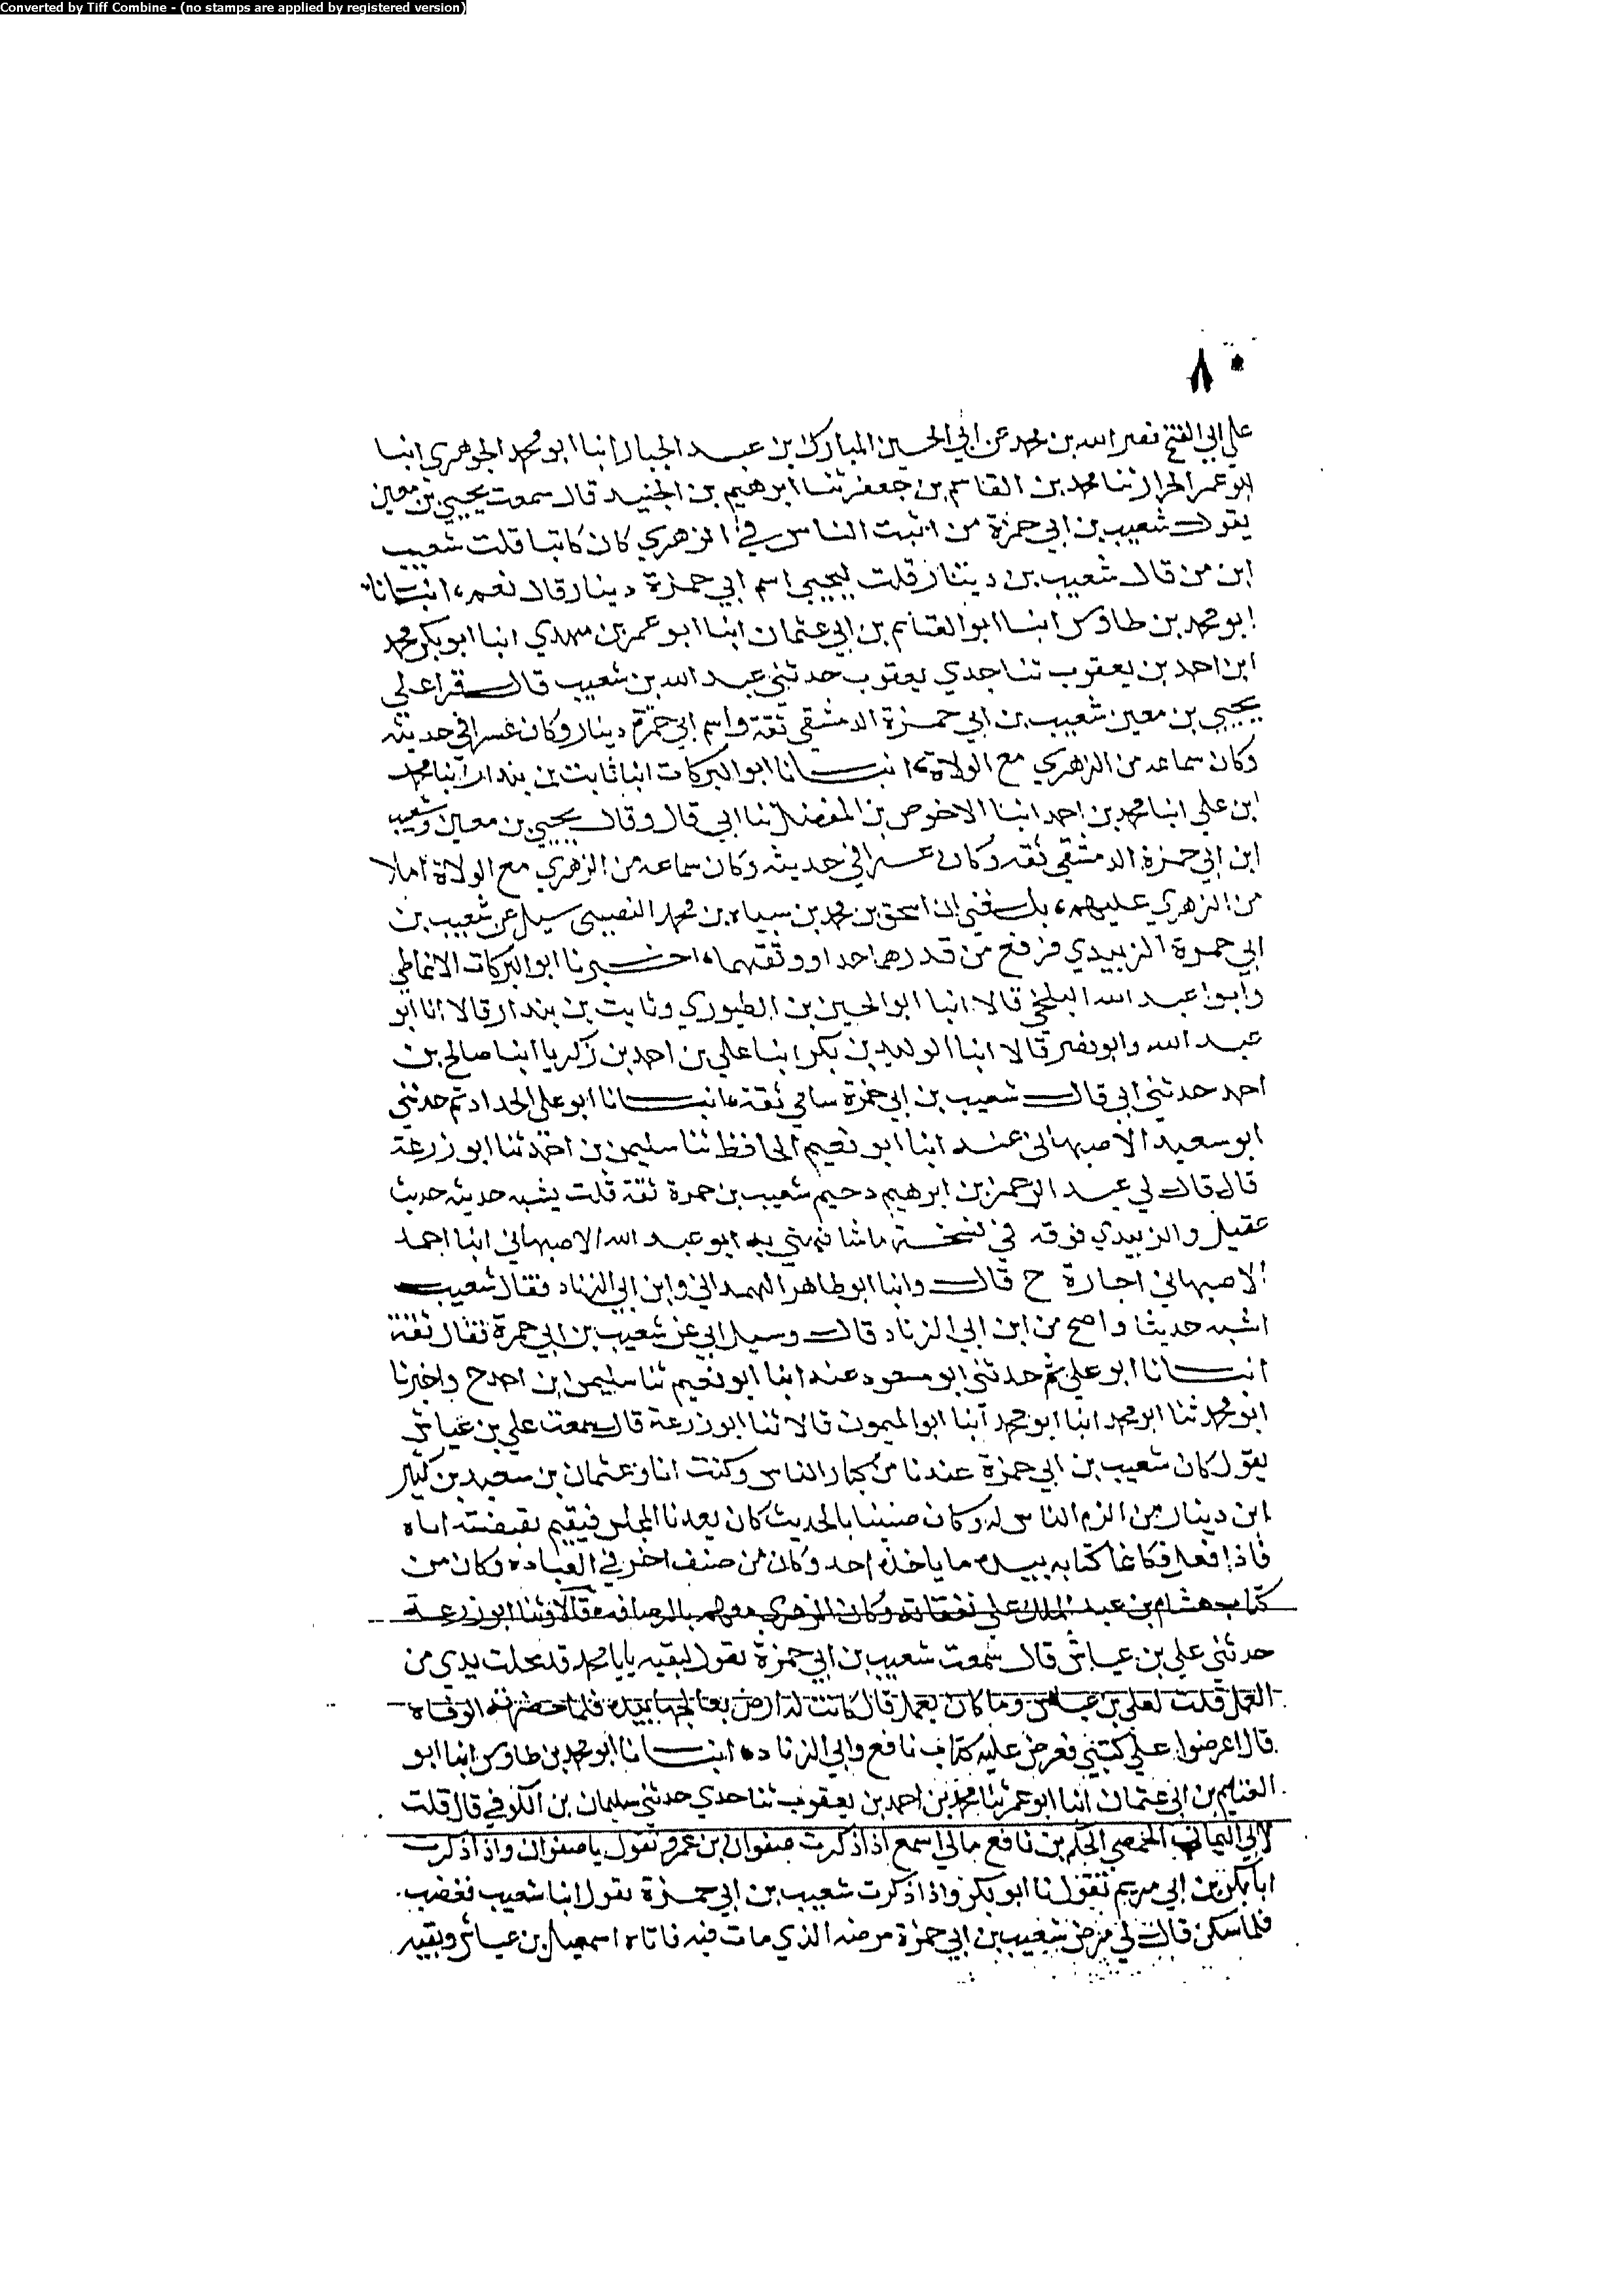 Converted by Tiff Combine - (no stamps are applied by registered version)
٨٠
علي ابي الفتح نصر الله بن محمد عن ابي الحسين المبارك بن عبد الجبار انبا ابو محمد الجوهري انبا
ابو عمر الخراز ثنا محمد بن القاسم بن جعفر ثنا ابرهيم بن الجنيد قال سمعت يحيي بن معين
يقول شعيب بن ابي حمزة من اثبت الناس في الزهري كان كاتبا قلت شعيب
ابن من قال شعيب بن دينار قلت ليحيي اسم ابي حمزة دينار قال نعم، انبانا
ابو محمد بن طاوس انبا ابو الغنايم بن ابي عثمان انبا ابو عمر بن مهدي انبا ابو بكر محمد
ابن احمد بن يعقوب ثنا جدي يعقوب حدثني عبد الله بن شعيب قال قرا علي
يحيي بن معين شعيب بن ابي حمزة الدمشقي ثقة واسم ابي حمزة دينار وكان عسرا في حديثه
وكان سماعه من الزهري مع الولاة، انبانا ابو البركات انبا ثابت بن بندار انبا محمد
ابن علي انبا محمد بن احمد انبا الاخوص بن المفضل ثنا ابي قال وقال يحيي بن معين وشعيب
ابن ابي حمزة الدمشقي ثقه وكان عسرا في حديثه وكان سماعه من الزهري مع الولاة املا
من الزهري عليهم، بلغني ان اسحق بن محمد بن سياه بن محمد النصيبي سيل عن شعيب بن
ابي حمزة الزبيدي فرفع من قدرهما جدا ووثقهما، اخبرنا ابو البركات الانماطي
وابوا عبد الله البلخي قالا انبا ابو الحسين بن الطيوري وثابت بن بندار قالا انا ابو
عبد الله وابو نصر قالا انبا الوليد بن بكر انبا علي بن احمد بن زكريا انبا صالح بن
احمد حدثني ابي قال شعيب بن ابي حمزة سامي ثقة، انبانا ابو علي الحداد ثم حدثني
ابو سعيد الاصبهاني عنه انبا ابو نعيم الحافظ ثنا سليمن بن احمد ثنا ابو زرعة
قال قال لي عبد الرحمن بن ابرهيم دحيم شعيب بن حمرة ثقة قلت يشبه حديثه حديث
عقيل والزبيدي فوقه في نسخة ما شافهني به ابو عبد الله الاصبهاني انبا احمد
الاصبهاني اجازة ح قال وانبا ابو طاهر الهمداني وابن ابي الزناد فقال شعيب
اشبه حديثا واصح من ابن ابي الزناد قال وسيل ابي عن شعيب بن ابي حمرة فقال ثقة
انبانا ابو علي ثم حدثني ابو مسعود عنه انبا ابو نعيم ثنا سليمن ابن احمد ح واخبرنا
ابو محمد ثنا ابو محمد انبا ابو محمد انبا ابو الميمون قالا ثنا ابو زرعة قال سمعت علي بن عياش
يقول كان شعيب بن ابي حمزة عندنا من كبار الناس وكنت انا وعثمان بن سعيد بن كثير
ابن دينار من الزم الناس له وكان ضنينا بالحديث كان يعدنا المجلس فيقيم نقيضته اياه
فاذا فعل فكانما كتابه بيده ما ياخذه احد وكان من صنف اخر في العبادة وكان من
كتاب هشام بن عبد الملك علي نفقاته وكان الزهري معهم بالرصافه، قالا وثنا ابو زرعة
حدثني علي بن عياش قال سمعت شعيب بن ابي حمزة يقول لبقيه يا با محمد قد مجلت يدي من
العمل قلت لعلي بن عياش وما كان يعمل قال كانت له ارض يعالجها بيده فلما حضرته الوفاه
قال اعرضوا علي كتبي فعرض عليه كتاب نافع وابي الزناد ٥ انبانا ابو محمد بن طاوس انبا ابو
الغنايم بن ابي عثمان انبا ابو عمر ثنا محمد بن احمد بن يعقوب ثنا جدي حدثني سليمان بن الكوفي قال قلت
لابي اليمان الحمصي الحكم بن نافع مالي اسمع اذا ذكرت صفوان بن عمرو تقول يا صفوان واذا ذكرت
ابا بكر بن ابي مريم تقول نا ابو بكر واذا ذكرت شعيب بن ابي حمزة تقول انبا شعيب فغضب
فلما سكن قال لي مرض شعيب بن ابي حمزة مرضه الذي مات فيه فاتاه اسمعيل بن عياش وبقيه